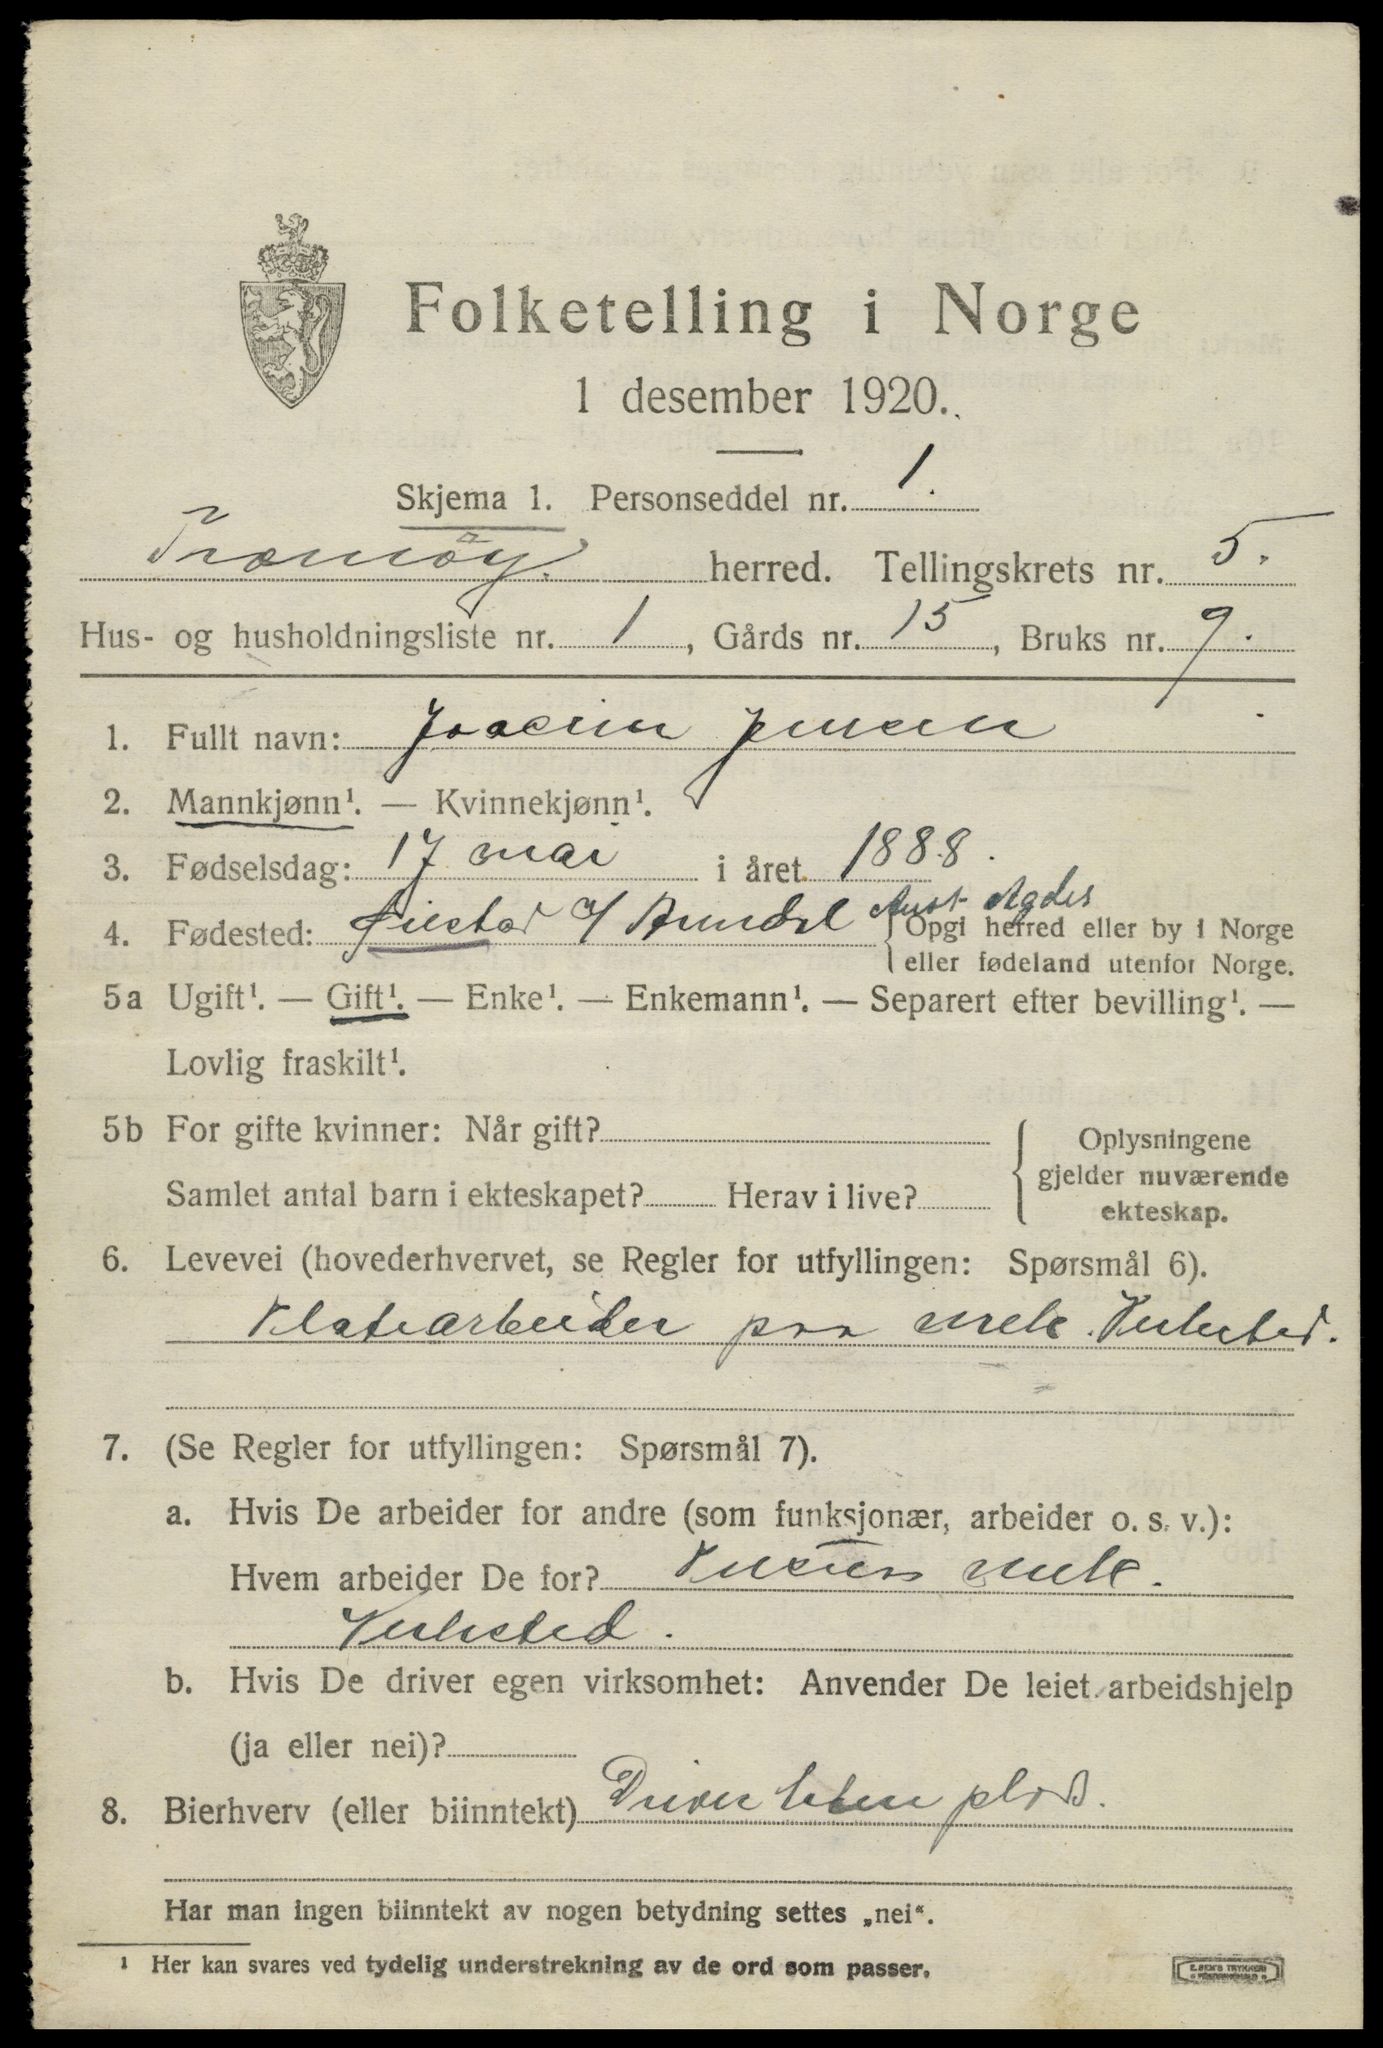 Folketelling i Norge
1 desember 1920.
Skjema 1. Personseddel nr. 1.
Tromöy. herred. Tellingskrets nr. 5.
Hus- og husholdningsliste nr. 1, Gårds nr. 15, Bruks nr. 9.
1. Fullt navn: Joacim Jensen
2. Mannkjønn¹. — Kvinnekjønn¹.
3. Fødselsdag: 17 mai i året 1888.
4. Fødested: Øiestad v/ Arendal Aust-Agder { Opgi herred eller by i Norge
eller fødeland utenfor Norge.
5a Ugift¹. — Gift¹. — Enke¹. — Enkemann¹. — Separert efter bevilling¹. —
Lovlig fraskilt¹.
5b For gifte kvinner: Når gift?
Samlet antal barn i ekteskapet? Herav i live?
Oplysningene
gjelder nuværende
ekteskap.
6. Levevei (hovederhvervet, se Regler for utfyllingen: Spørsmål 6).
Platearbeider paa mek. Verksted.
7. (Se Regler for utfyllingen: Spørsmål 7).
a. Hvis De arbeider for andre (som funksjonær, arbeider o. s. v.):
Hvem arbeider De for? mek.
Verksted.
b. Hvis De driver egen virksomhet: Anvender De leiet arbeidshjelp
(ja eller nei)?
8. Bierhverv (eller biinntekt) Driver liten plads.
Har man ingen biinntekt av nogen betydning settes „nei“.
¹ Her kan svares ved tydelig understrekning av de ord som passer.